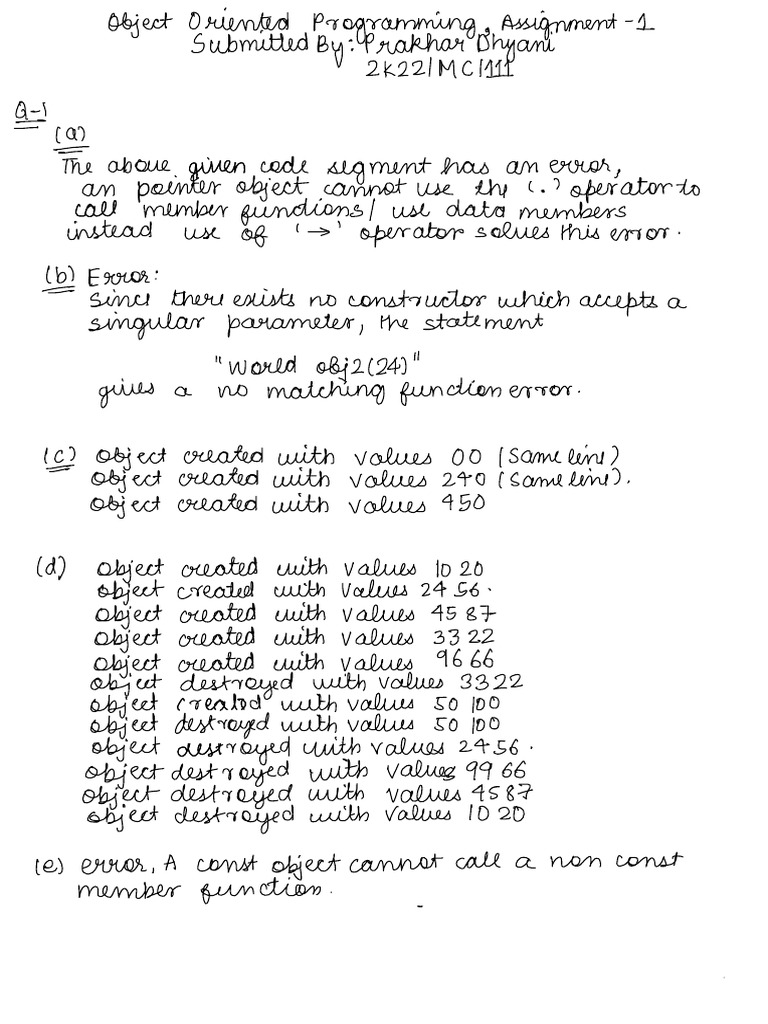 Object Oriented Programming, Assignment -1
Submitted By: Prakhar Dhyani
2K22/MC/111
Q-1
(a)
The above given code segment has an error,
an pointer object cannot use the '.' operator to
call member functions/ use data members
instead use of '→' operator solves this error.
(b) Error:
Since there exists no constructor which accepts a
singular parameter, the statement
"World obj2(24)"
gives a no matching function error.
(c) object created with values 00 (Same line)
object created with values 240 (Same line).
object created with values 450
(d) object created with values 10 20
object created with values 24 56.
object created with values 45 87
object created with values 33 22
object created with values 96 66
object destroyed with values 33 22
object created with values 50 100
object destroyed with values 50 100
object destroyed with values 24 56.
object destroyed with values 99 66
object destroyed with values 45 87
object destroyed with values 10 20
(e) error, A const object cannot call a non const
member function.